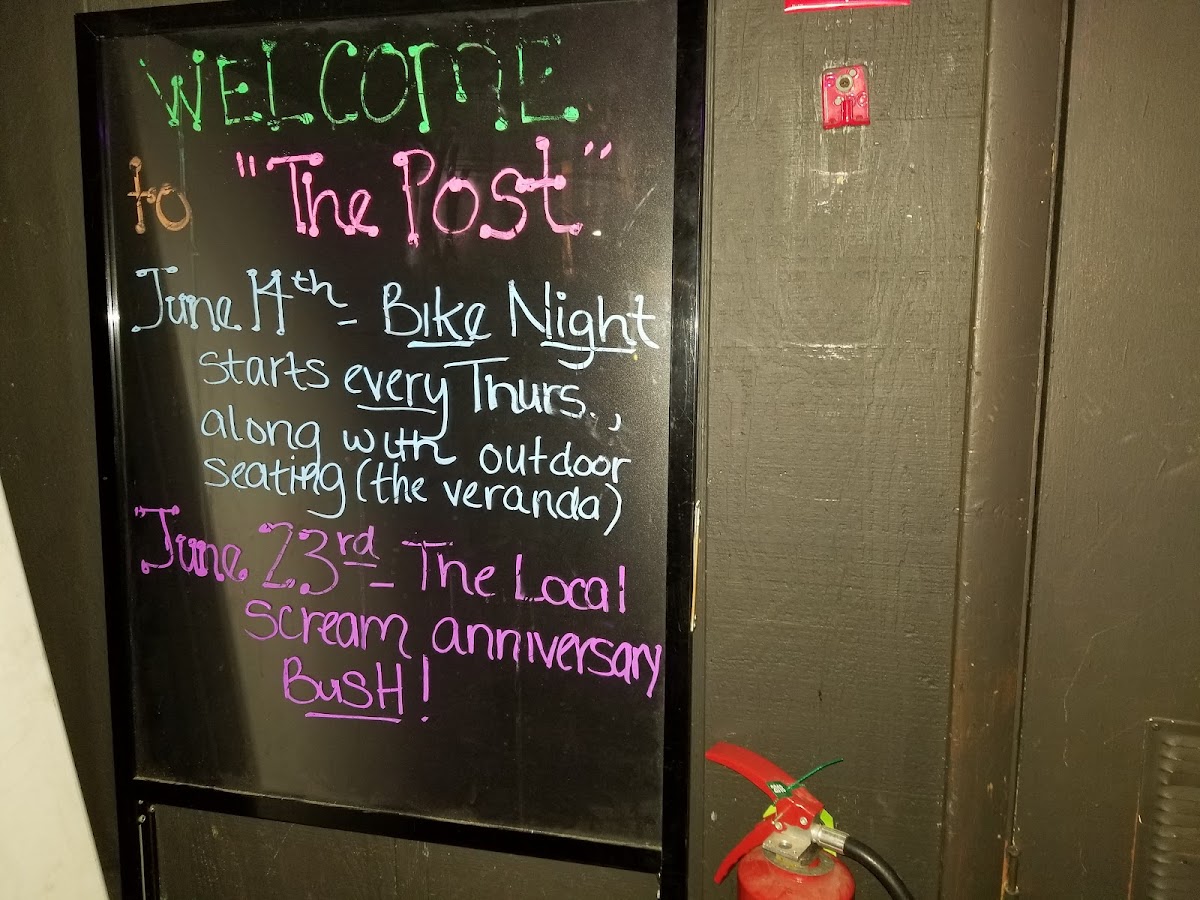 WELCOME
to "The Post"
June 14th - Bike Night
starts every Thurs.,
along with outdoor
seating (the veranda)
June 23rd - The Local
scream anniversary
BusH!